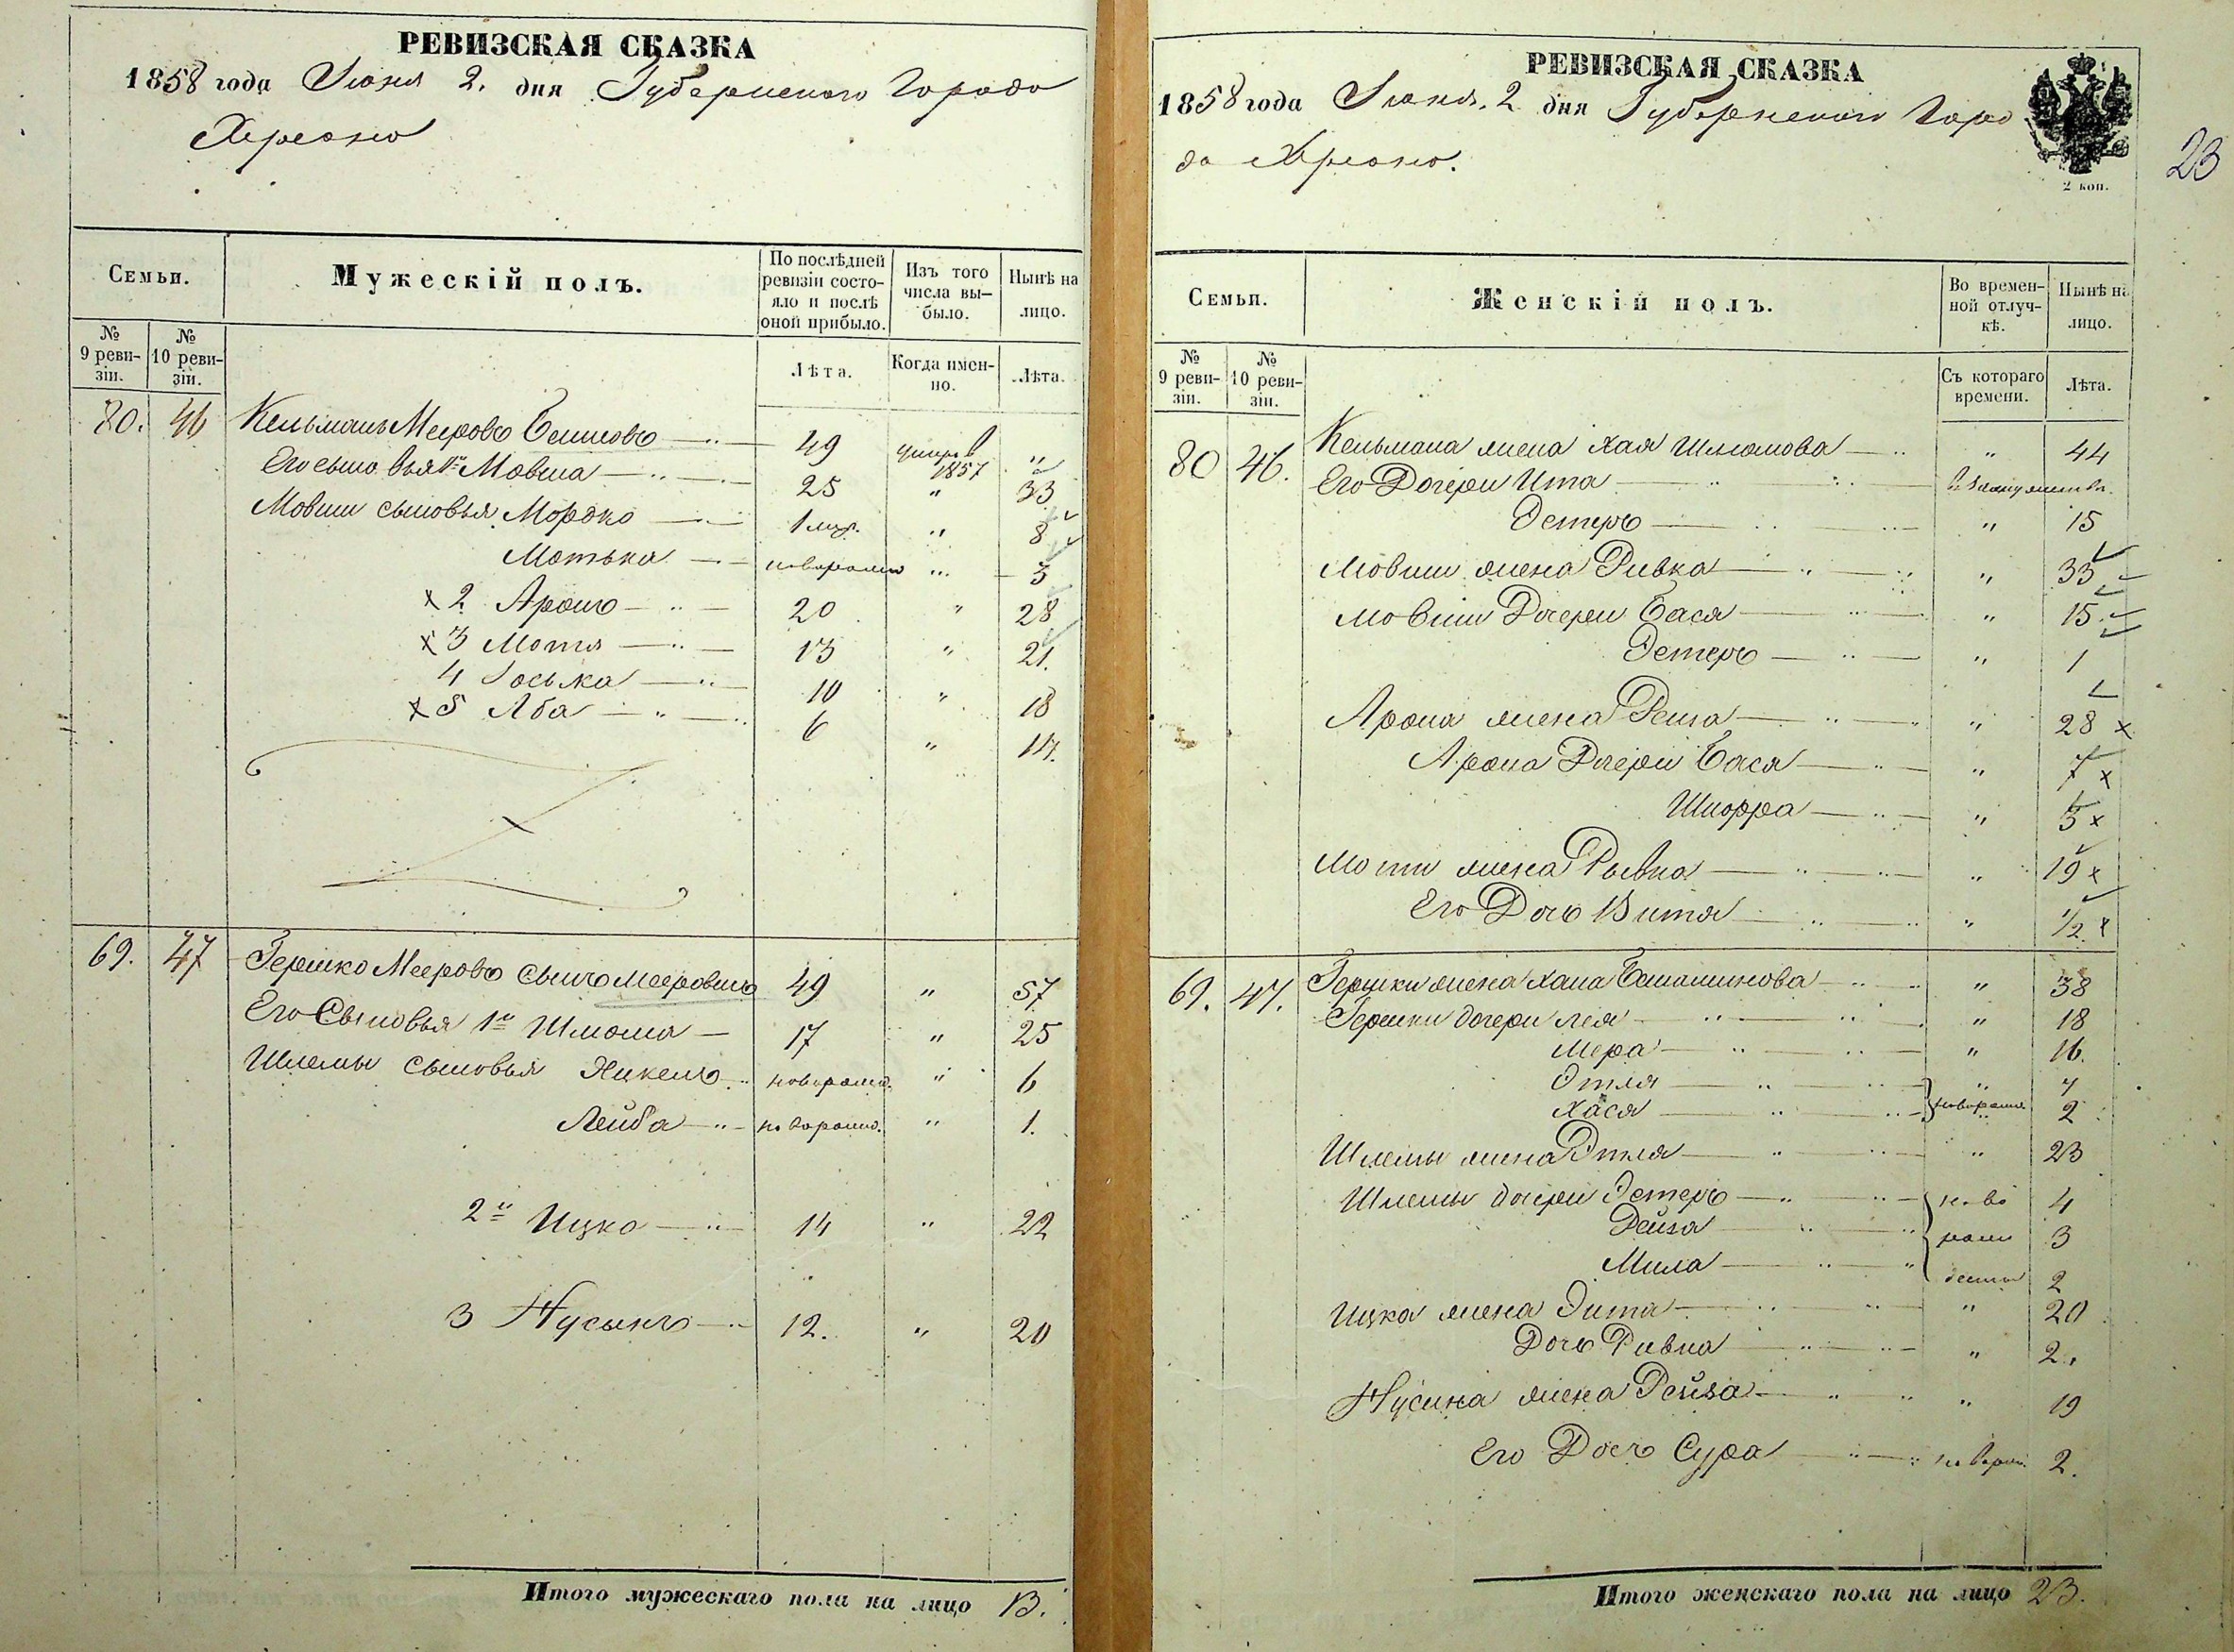 РЕВИЗСКАЯ СКАЗКА
1858 года Июня 2. дня Губернскаго Города
Херсона
Семьи.
Мужескій полъ.
По послѣдней ревизіи состояло и послѣ оной прибыло.
Изъ того числа выбыло.
Нынѣ на лицо.
№ 9 ревизіи.
№ 10 ревизіи.
Лѣта.
Когда именно.
Лѣта.
80. 46 Кельманъ Мееровъ 49 умеръ в 1857 "
Его сыновья 1й Мовша 25 " 33
Мовши сыновья Мордко 1 " 8
Мотька новорожд " 3
х 2 Аронъ 20 " 28
х 3 Мотя 13 " 21.
4 Іоська 10 " 18
х 5 Аба 6 " 14.
69. 47 Гершко Мееровъ сынъ Мееровичъ 49 " 57
Его Сыновья 1й Шлома 17 " 25
Шлемы сыновья Янкель новорожд. " 6
Лейба новорожд. " 1.
2й Ицко 14 " 22
3 Нусынъ 12. " 20
Итого мужескаго пола на лицо 13.
РЕВИЗСКАЯ СКАЗКА
1858 года Июня. 2 дня Губернскаго Горо
да Херсона.
2 коп.
23
Семьи.
Женскій полъ.
Во временной отлучкѣ.
Нынѣ на лицо.
№ 9 ревизіи.
№ 10 ревизіи.
Съ котораго времени.
Лѣта.
80 46. Кельмана жена Хая Шлиомова " 44
Его Дочери Ита В замужестве.
Эстеръ " 15
Мовши жена Ривка " 33
Мовши Дочери Бася " 15.
Эстеръ " 1
Арона жена Рейза " 28 х
Арона Дочери Бася " 7 х
Шпорра " 3 х
Моти жена Рывка " 19 х
Его Дочь Витя " 1/2. х
69. 47. Гершки жена Хана " 38
Гершки дочери Лея " 18
Мера " 16.
Этля " 4
Хася новорожд 2
Шлемы жена Этля " 23
Шлемы дочери Эстеръ ново 4
Рейза рож 3
Мила денные 2
Ицка жена Эита " 20
Дочь Ривка " 2.
Нусина жена Рейза " 19
Его Дочъ Сура новорож. 2.
Итого женскаго пола на лицо 23.